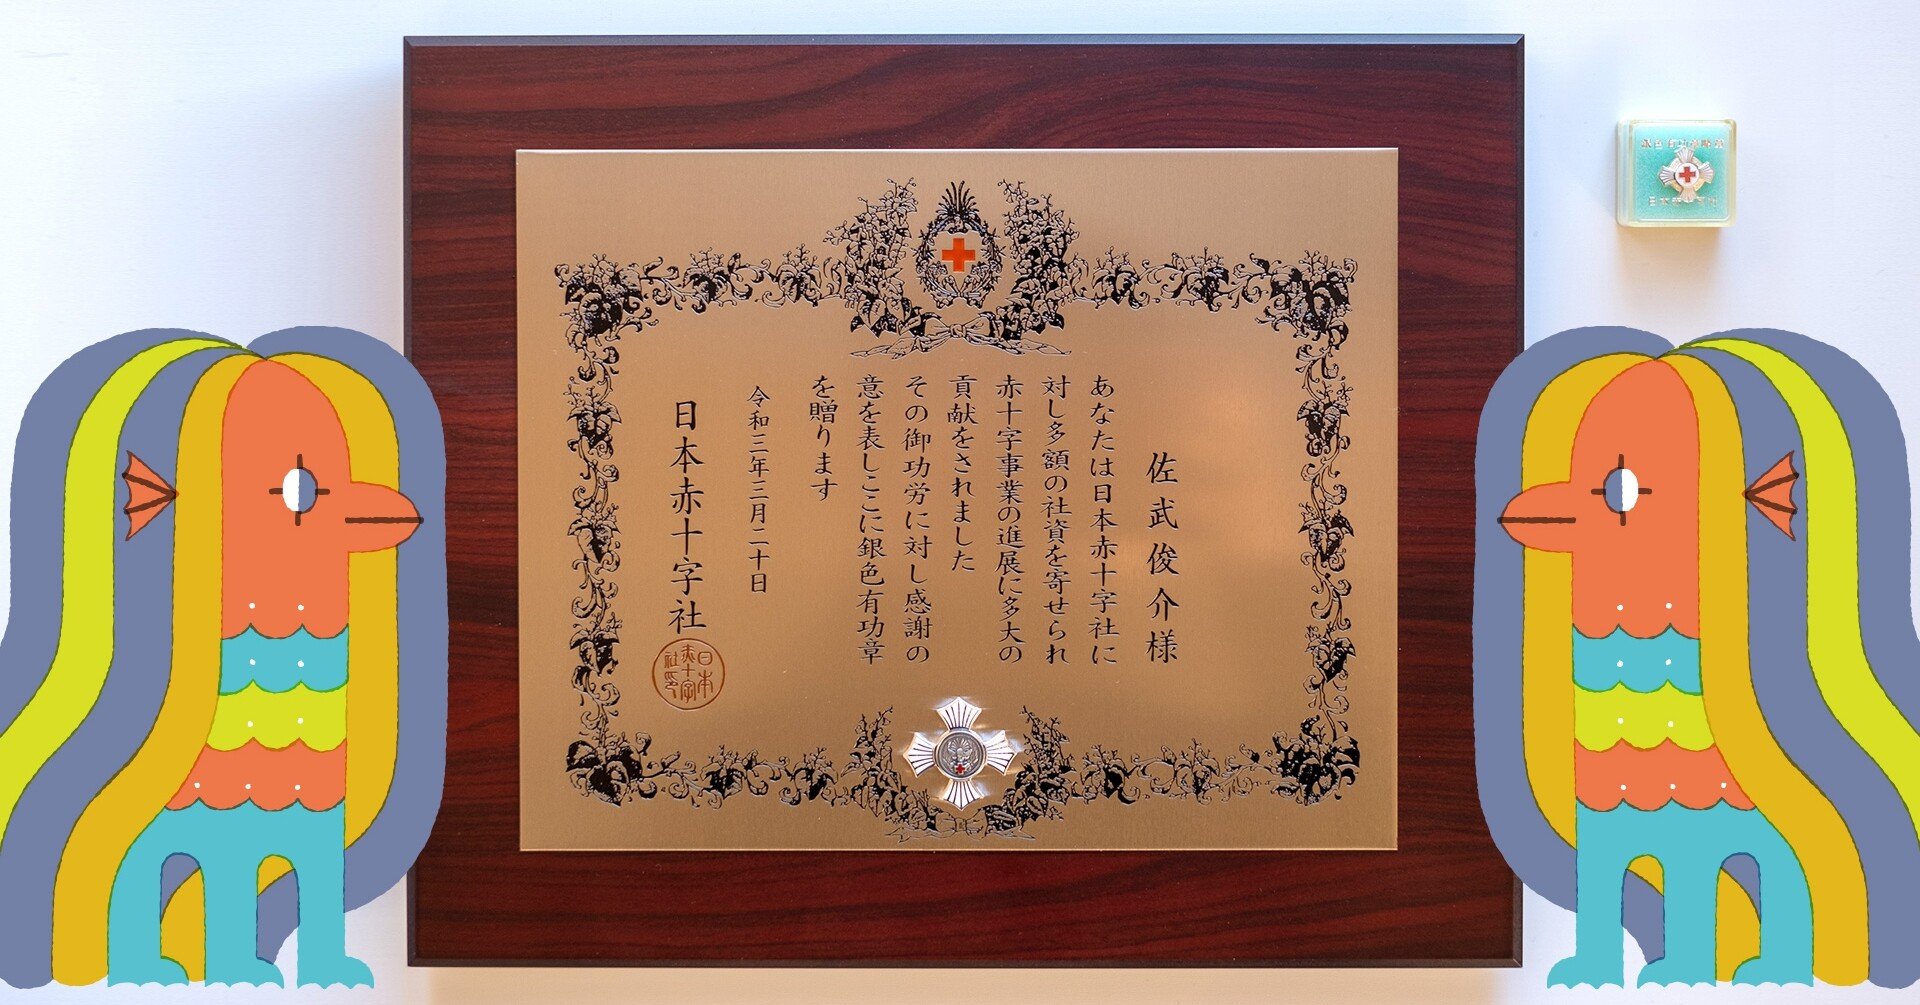 佐武俊介様
あなたは日本赤十字社に
対し多額の社資を寄せられ
赤十字事業の進展に多大の
貢献をされました
その御功労に対し感謝の
意を表しここに銀色有功章
を贈ります
令和三年三月二十日
日本赤十字社
日本
赤十字
社印